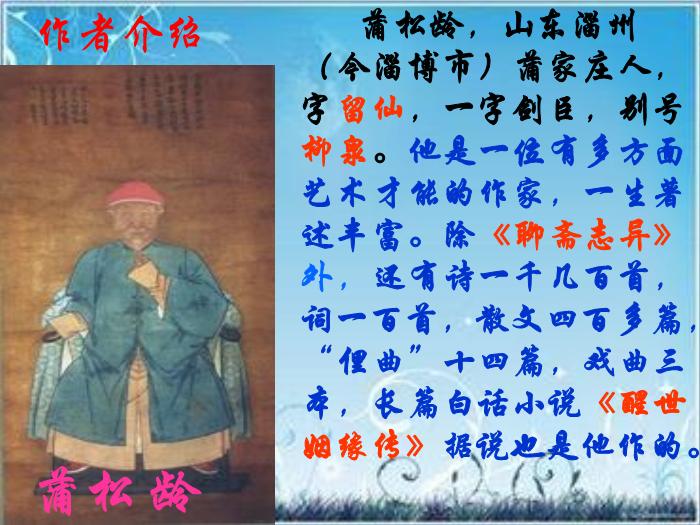 作者介绍
蒲松龄，山东淄州
（今淄博市）蒲家庄人，
字留仙，一字剑臣，别号
柳泉。他是一位有多方面
艺术才能的作家，一生著
述丰富。除《聊斋志异》
外，还有诗一千几百首，
词一百首，散文四百多篇，
“俚曲”十四篇，戏曲三
本，长篇白话小说《醒世
姻缘传》据说也是他作的。
蒲松龄